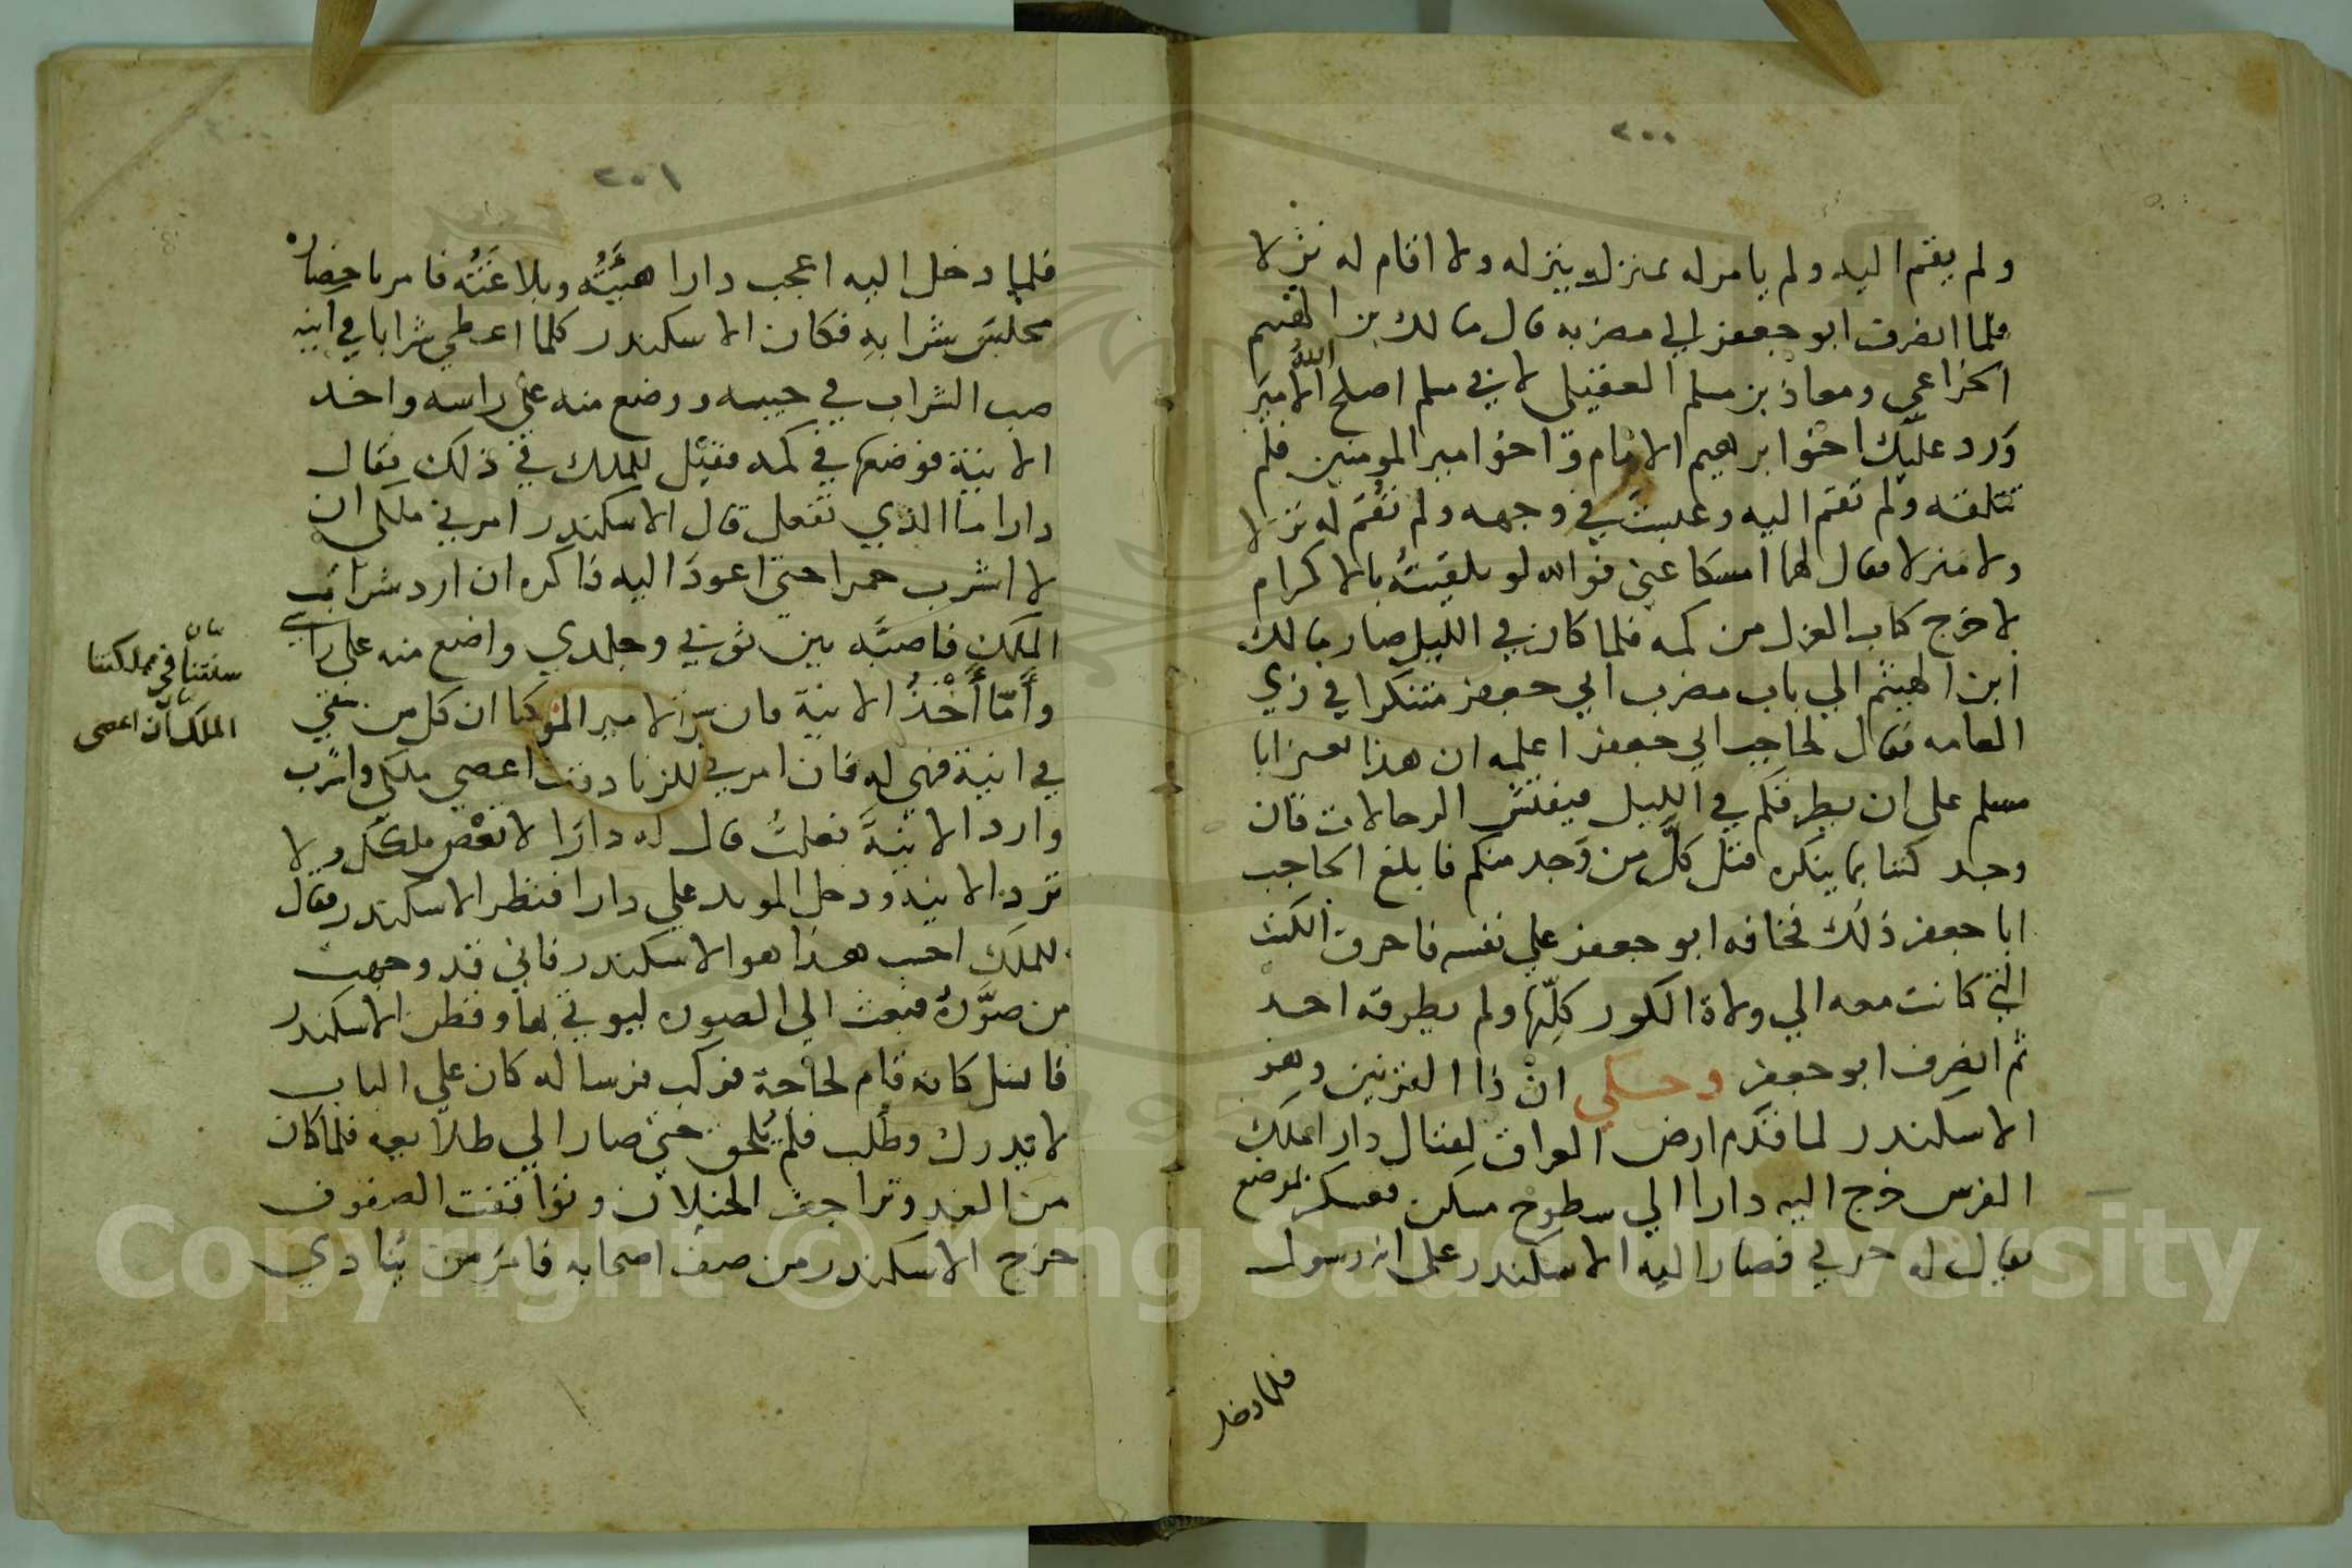 ٢٠٠
ولم يقم اليه ولم يامر له بمنزل ينزله ولا اقام له نزلا
فلما انصرف ابو جعفر الي مضربه قال مالك بن الهيثم
الخزاعي ومعاذ بن مسلم العقيلي لابي مسلم اصلح الله الامير
ورد عليك اخو ابرهيم الامام واخو امير المومنين فلم
تتلقه ولم تقم اليه وعبست في وجهه ولم تقم له نزلا
ولا منزلا فقال لهما امسكا عني فوالله لو تلقيته بالاكرام
لاخرج كتاب العزل من كمه فلما كان في الليل صار مالك
ابن الهيثم الي باب مضرب ابي جعفر متنكرا في زي
العامه فقال لحاجب ابي جعفر اعلمه ان هذا ابا
مسلم على ان يطرقكم في الليل فيفتش الرحالات فان
وجد كتبا بما ينكره قتل كل من وجد منكم فابلغ الحاجب
ابا جعفر ذلك فخافه ابو جعفر علي نفسه فاحرق الكتب
التي كانت معه الي ولاة الكور كلها ولم يطرقه احد
ثم انصرف ابو جعفر وحكي ان ذا القرنين وهو
الاسكندر لما قدم ارض العراق لقتال دارا ملك
الفرس خرج اليه دارا الي سطوح مسكن فعسكر بموضع
يقال له حربي فصار اليه الاسكندر على انه رسول
فلما دخل
٢٠١
فلما دخل اليه اعجب دارا هيئته وبلاغته فامر باحضاره
مجلس شرابه فكان الاسكندر كلما اعطي شرابا في انيه
صب الشراب في جيبه ووضع منه على راسه واخذ
الانية فوضعها في كمه فقيل للملك في ذلك فقال
دارا ما الذي تفعل قال الاسكندر امرني ملكي ان
لا اشرب خمرا حتى اعود اليه فاكره ان ارد شراب
الملك فاصبه بين ثوبي وجلدي واضع منه على راسي
واما اخذ الانية فان كل من سقي
في انية فهي له فان امرني اعصي ملكي واشرب
وارد الانية فعلت قال له دارا لا تعص ملكك ولا
ترد الانيه ودخل الموبد علي دارا فنظر الاسكندر فقال
للملك احسب هذا هو الاسكندر فاني قد وجهت
من صوره فبعث الي الصوره ليوتي بها وفطن الاسكندر
فانسل كانه قام لحاجة فركب فرسا له كان على الباب
لا يدرك وطلب فلم يلحق حتى صار الي طلائعه فلما كان
من الغد وتراجف الخيلان وتواقفت الصفوف
خرج الاسكندر من صف اصحابه فامر من ينادي
سنتنا في مملكتنا
الملك ان اعصى
Copyright © King Saud University